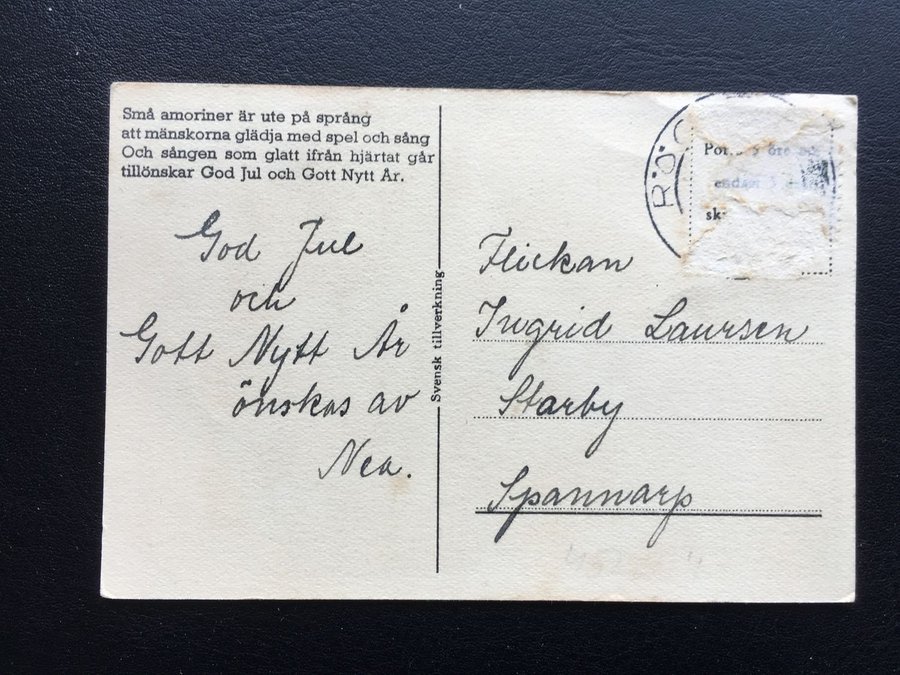 Små amoriner är ute på språng
att mänskorna glädja med spel och sång
Och sången som glatt ifrån hjärtat går
tillönskar God Jul och Gott Nytt År.
God Jul
och
Gott Nytt År
önskas av
Nea.
Svensk tillverkning
RÖ
öre
endast 5
Flickan
Ingrid Laursen
Starby
Spannarp